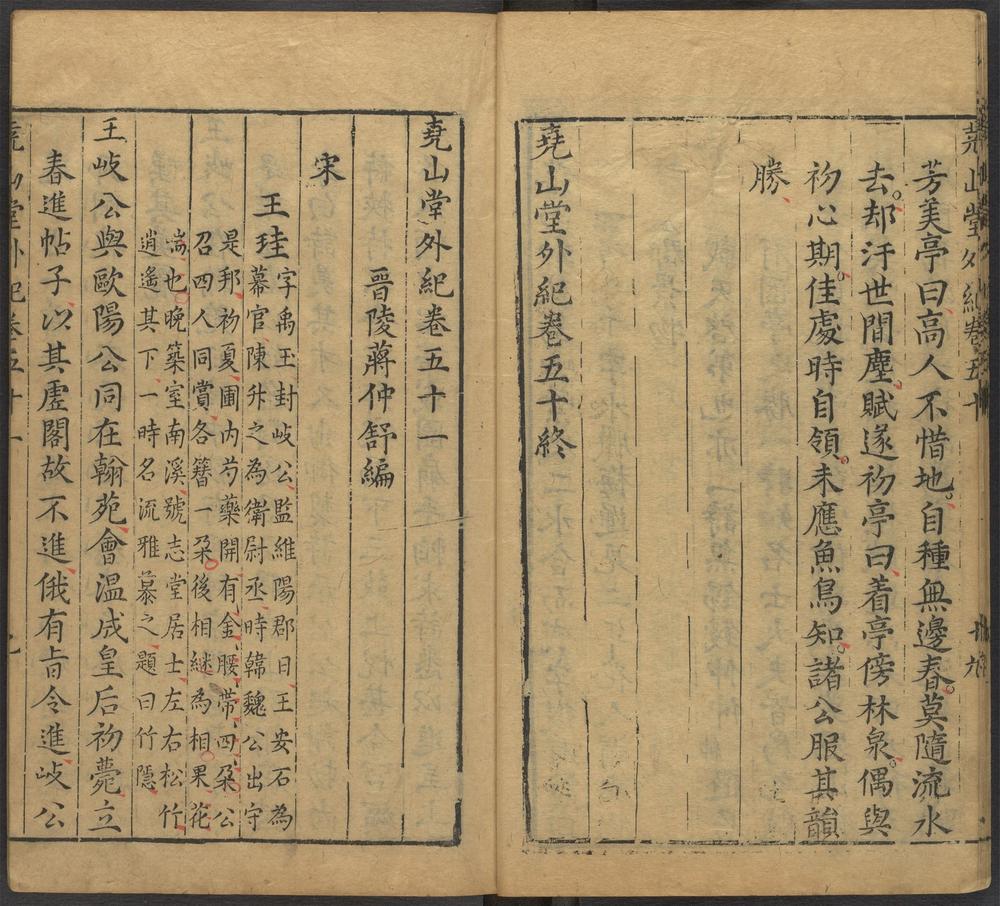 堯山堂外紀卷五十
十九
芳美亭曰高人不惜地自種無邊春莫隨流水
去却汙世間塵賦遂初亭曰着亭傍林泉偶與
初心期佳處時自領未應魚鳥知諸公服其韻
勝
堯山堂外紀卷五十終
堯山堂外紀卷五十一
晉陵蔣仲舒編
宋
王珪字禹玉封岐公監維陽郡日王安石為
幕官陳升之為衛尉丞時韓魏公出守
是邦初夏圃内芍藥開有金腰帶四朶公
召四人同賞各簪一朶後相継為相果花
瑞也晚築室南溪號志堂居士左右松竹
逍遙其下一時名流雅慕之題曰竹隱
王岐公與歐陽公同在翰苑會溫成皇后初薨立
春進帖子以其虛閣故不進俄有旨令進岐公
堯山堂外紀卷五十一